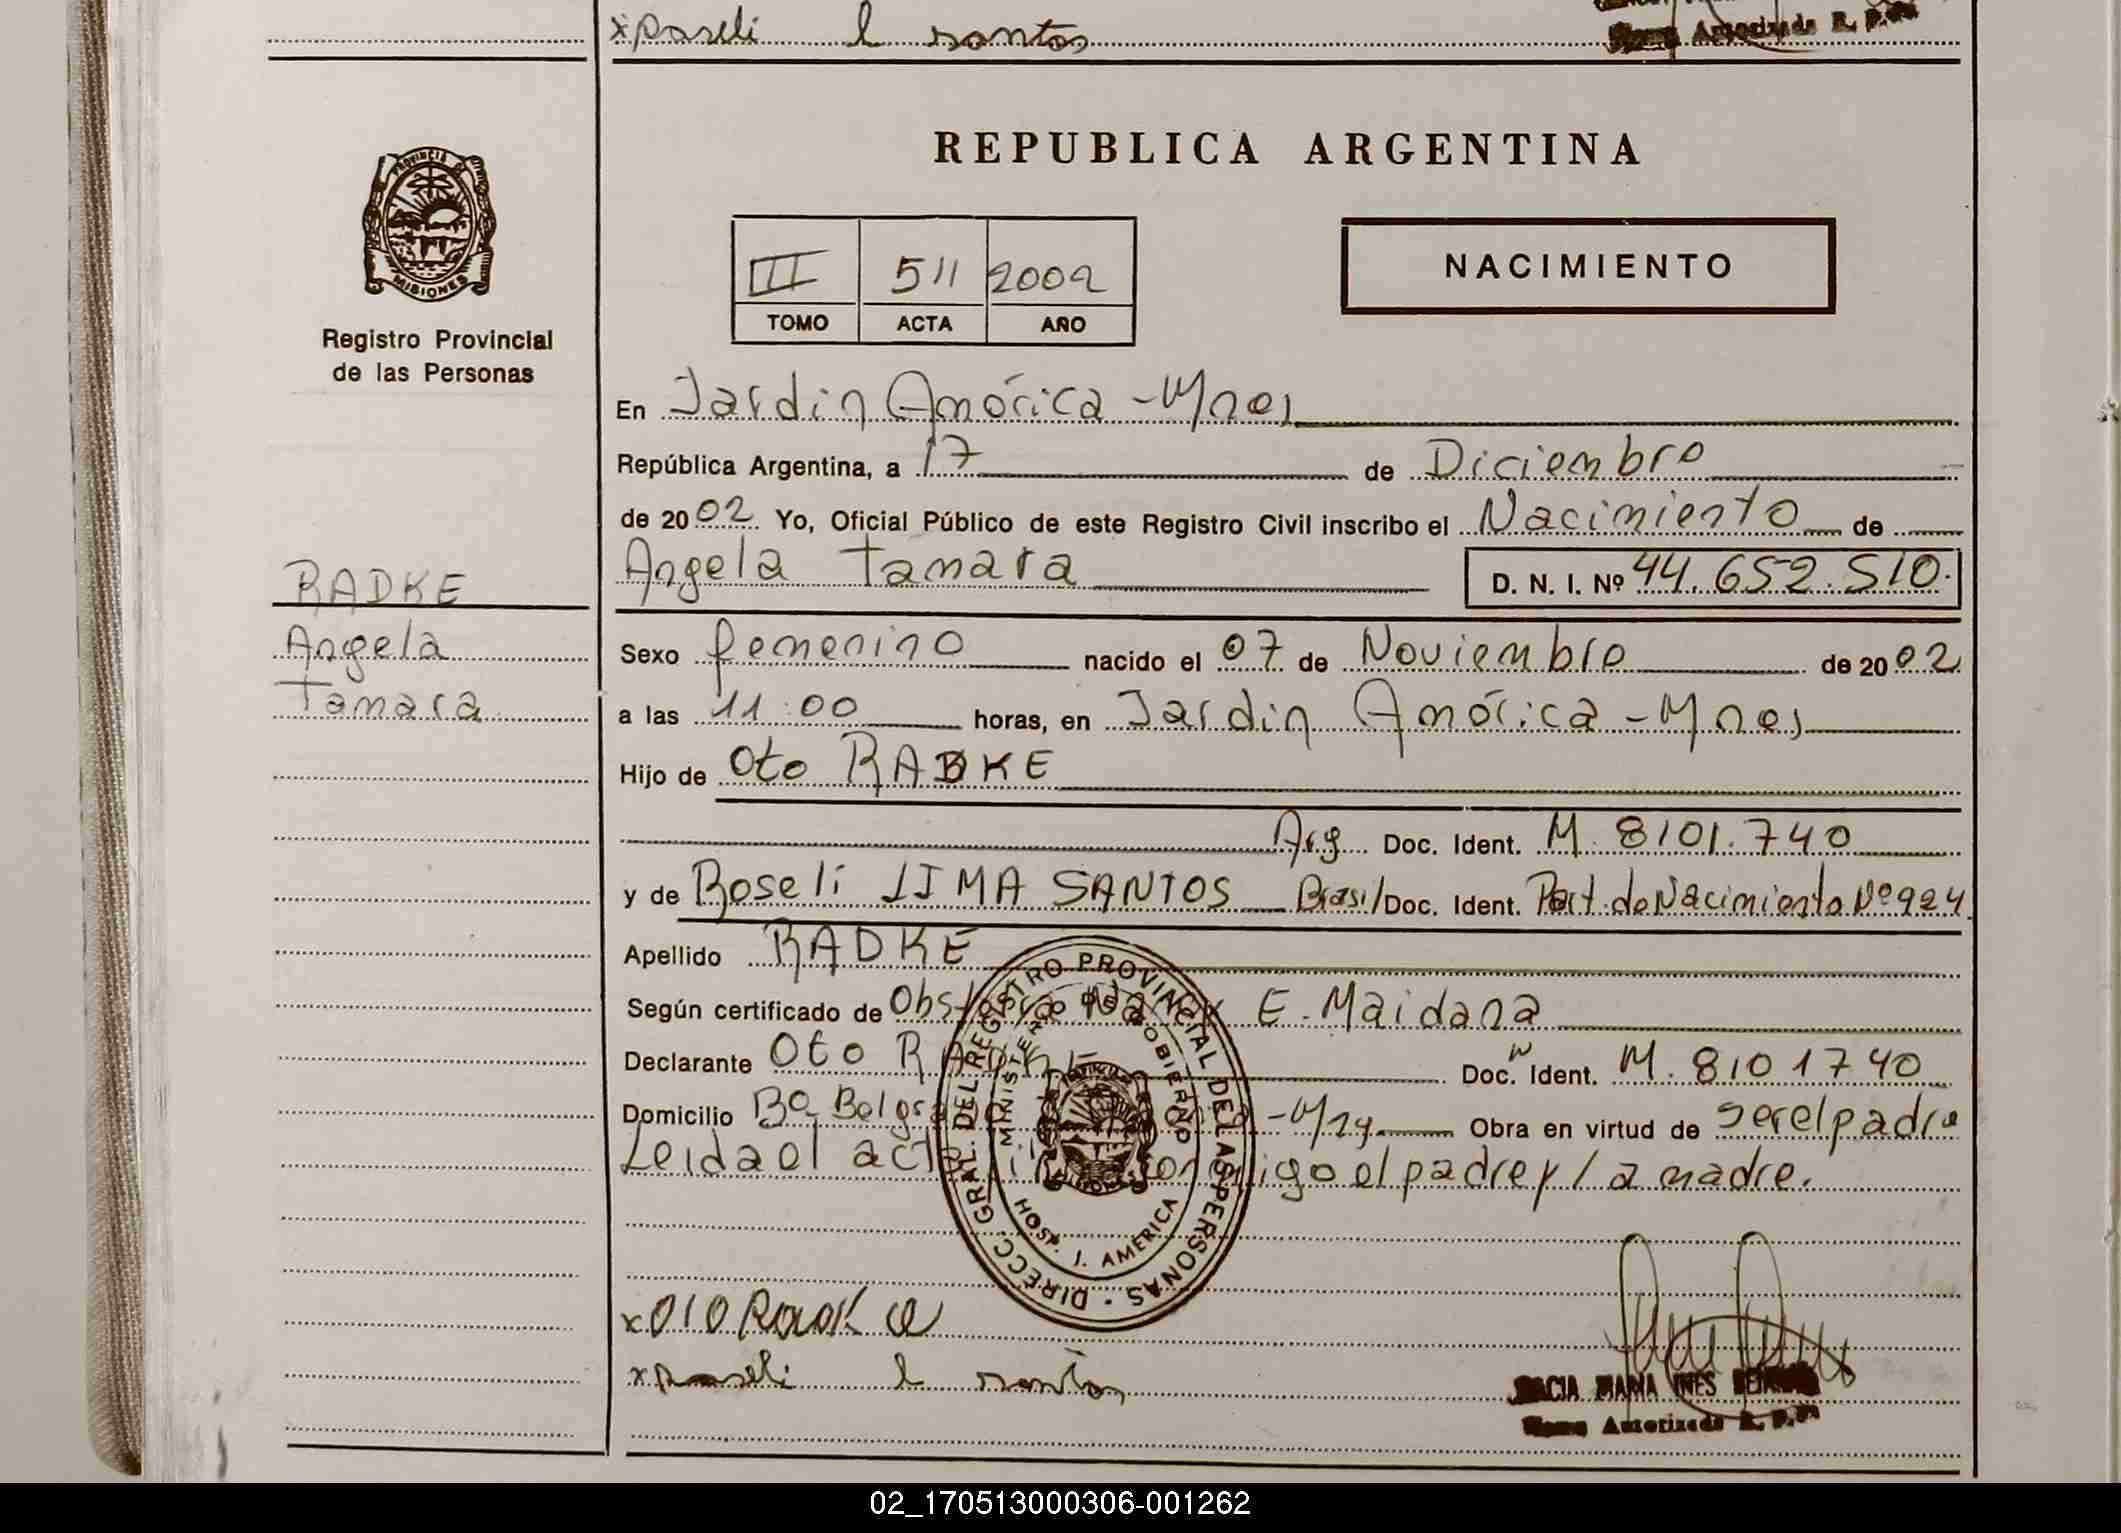 xRoseli l santos
Autorizada R. P.
PROVINCIA DE
MISIONES
Registro Provincial
de las Personas
REPUBLICA ARGENTINA
III 511 2002
TOMO ACTA AÑO
NACIMIENTO
En Jardin América - Mnes
República Argentina, a 17 de Diciembre
de 2002 Yo, Oficial Público de este Registro Civil inscribo el Nacimiento de
Angela Tamara D. N. I. Nº 44.652.510.
RADKE
Angela
Tamara
Sexo femenino nacido el 07 de Noviembre de 2002
a las 11:00 horas, en Jardin América - Mnes
Hijo de Oto RADKE
Arg Doc. Ident. M. 8101.740
y de Roseli LIMA SANTOS Brasil Doc. Ident. Part. de Nacimiento Nº 924
Apellido RADKE
Según certificado de E. Maidana
Declarante Oto RADKE Doc. Ident. M. 8101740
Domicilio Bº Belgr Obra en virtud de ser el padre
Leida el act igo el padre y la madre.
DIRECC. GRAL. DEL REGISTRO PROVINCIAL DE LAS PERSONAS
MINISTERIO DE GOBIERNO
HOSP. J. AMERICA
xOTO Radke
xRoseli l santos
MARIA INES
Autorizada R. P.
02_170513000306-001262